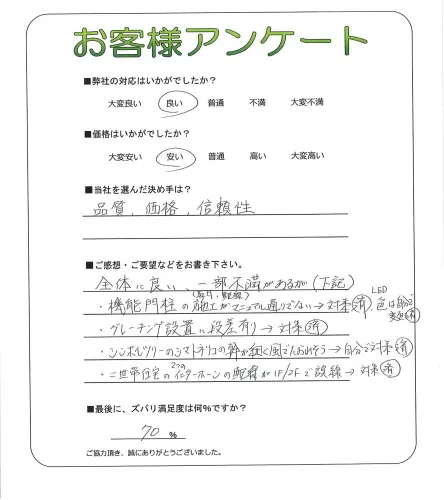 お客様アンケート
■弊社の対応はいかがでしたか?
大変良い 良い 普通 不満 大変不満
■価格はいかがでしたか?
大変安い 安い 普通 高い 大変高い
■当社を選んだ決め手は?
品質、価格、信頼性
■ご感想・ご要望などをお書き下さい。
全体に良い、一部不満があるが(下記)
・機能門柱の施工がマニュアル通りでない→対策済 LED 色は自分で
・グレーチング設置に段差有り→対策済
・シンボルツリーのシマトネリコの幹が細く風でたおれそう→自分で対策済
・二世帯住宅の2つのインターホーンの配線が1F/2Fで誤線→対策済
■最後に、ズバリ満足度は何%ですか?
70 %
ご協力頂き、誠にありがとうございました。